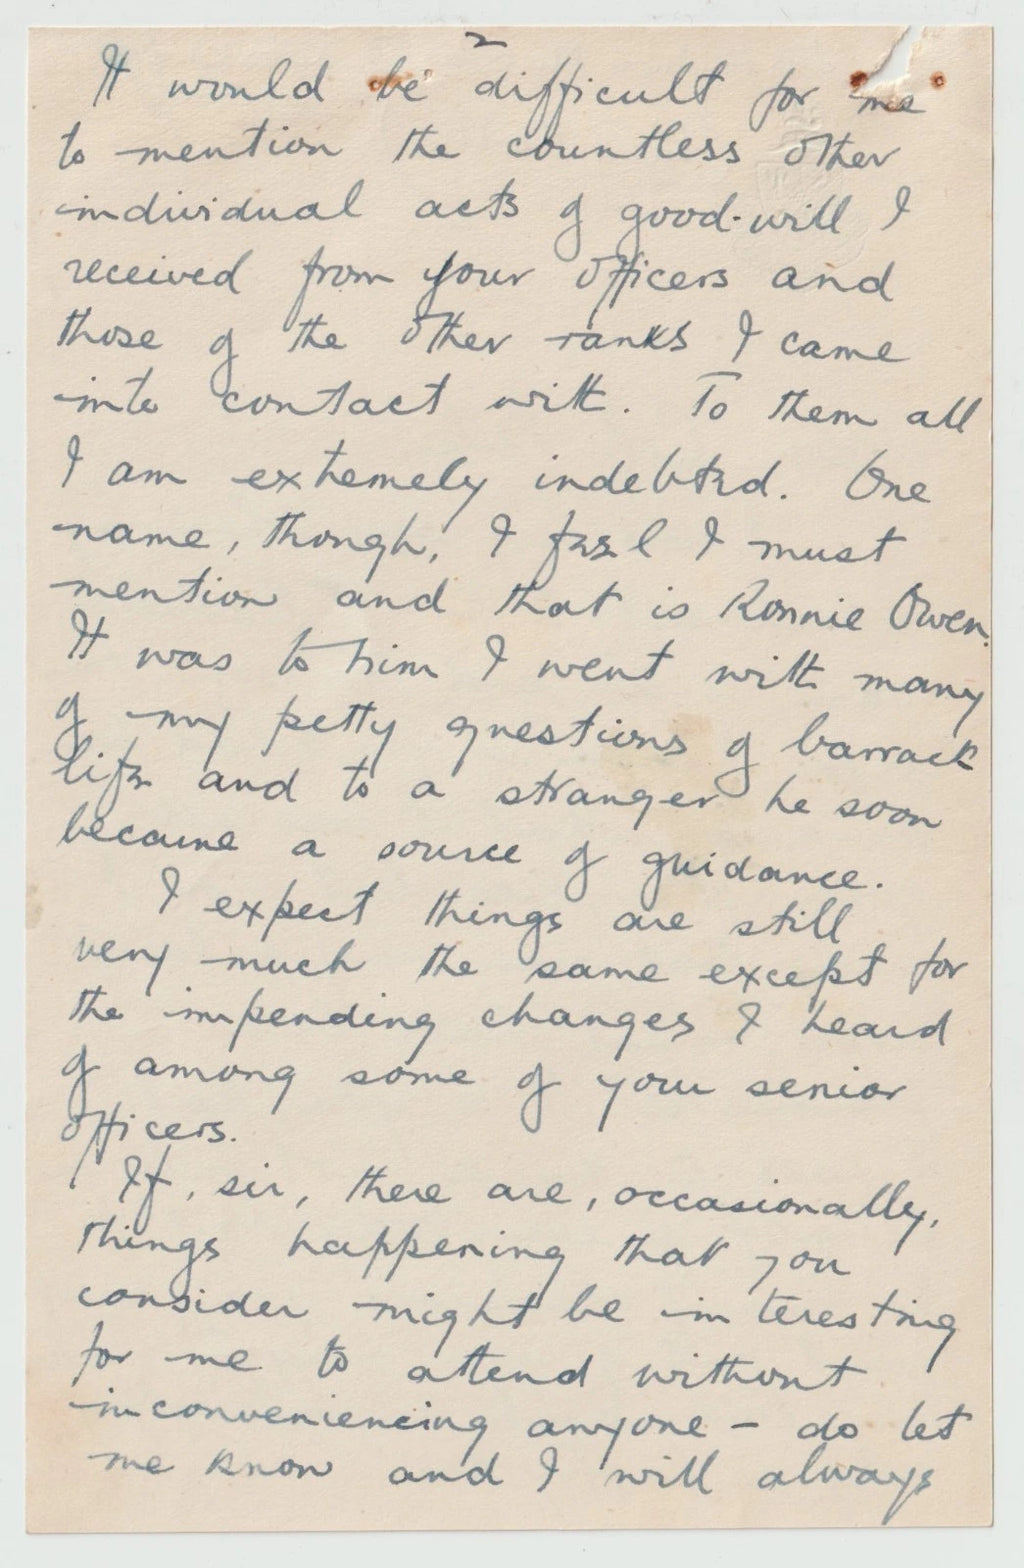 2
It would be difficult for me
to mention the countless other
individual acts of good-will I
received from your officers and
those of the other ranks I came
into contact with. To them all
I am extremely indebted. One
name, though, I feel I must
mention and that is Ronnie Owen.
It was to him I went with many
of my petty questions of barrack
life and to a stranger he soon
became a source of guidance.
I expect things are still
very much the same except for
the impending changes I heard
of among some of your senior
officers.
If, sir, there are, occasionally,
things happening that you
consider might be interesting
for me to attend without
inconveniencing anyone – do let
me know and I will always